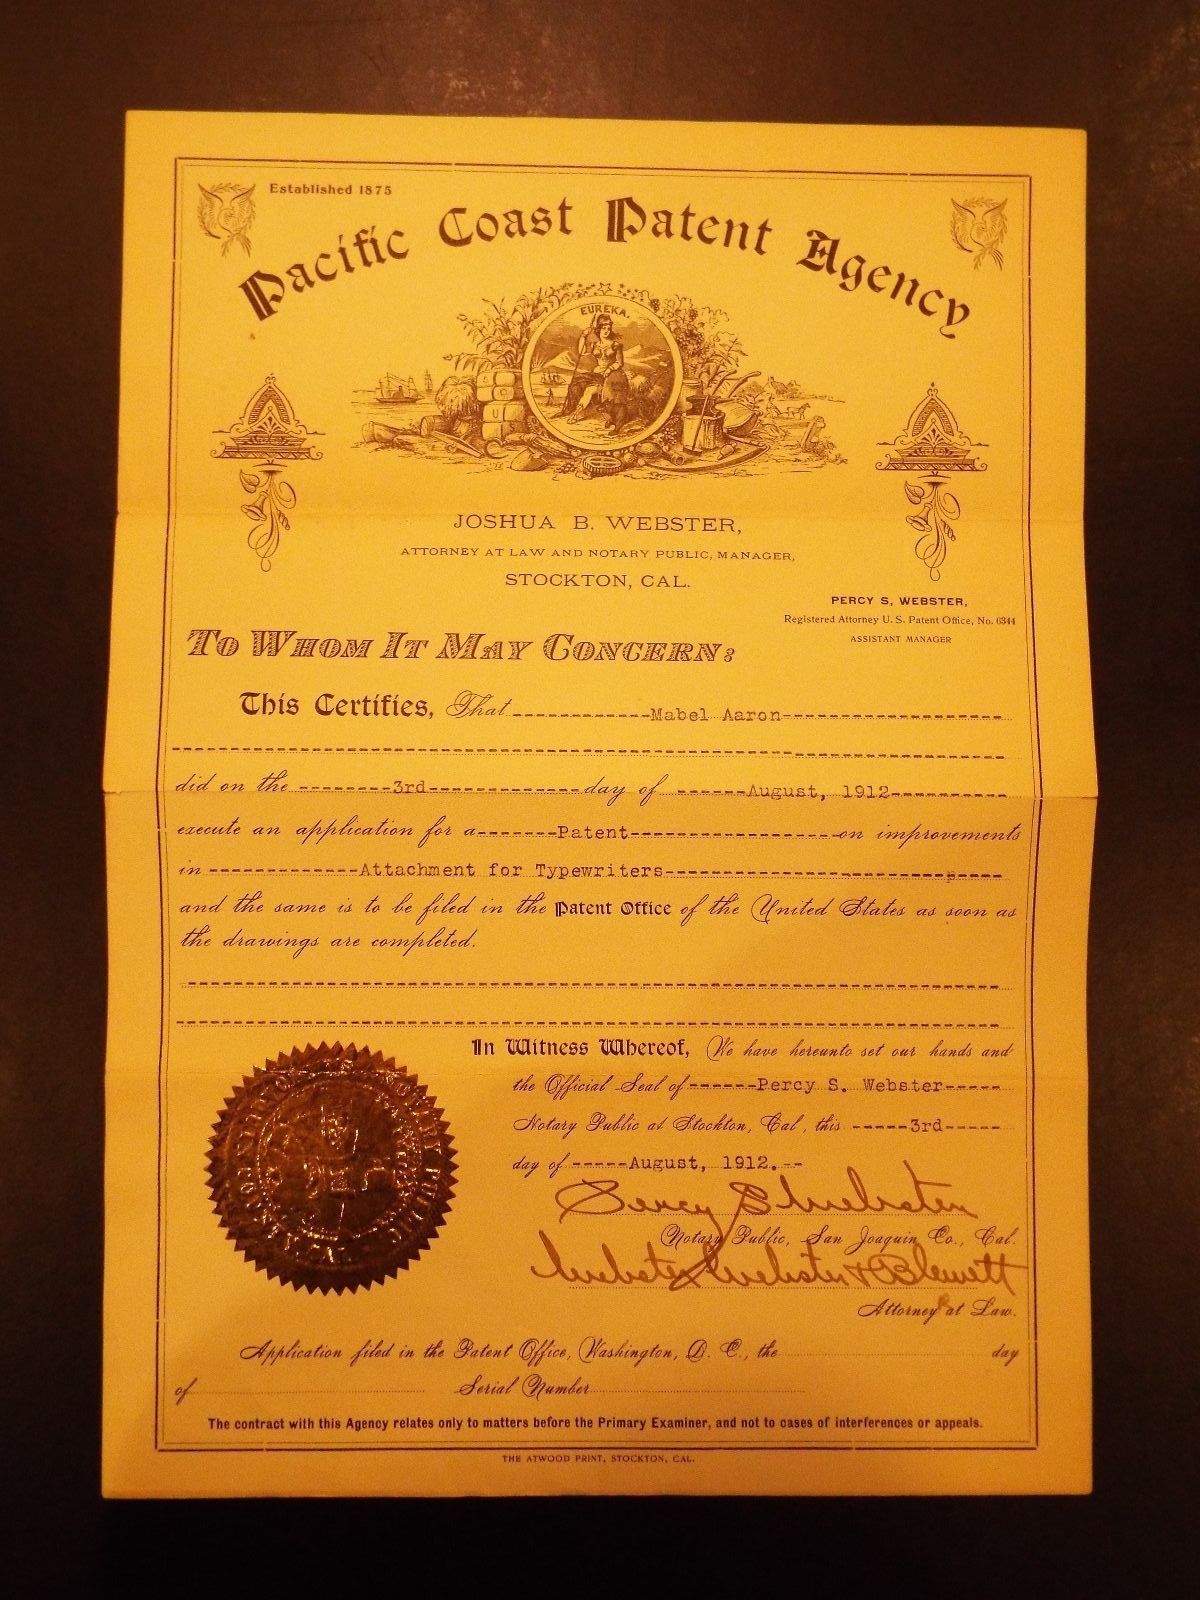 Established 1875
Pacific Coast Patent Agency
EUREKA.
JOSHUA B. WEBSTER,
ATTORNEY AT LAW AND NOTARY PUBLIC, MANAGER,
STOCKTON, CAL.
PERCY S, WEBSTER,
Registered Attorney U. S. Patent Office, No. 6344
ASSISTANT MANAGER
TO WHOM IT MAY CONCERN:
This Certifies, That ------------Mabel Aaron-------------------
did on the --------3rd-------------day of ------August, 1912----------
execute an application for a-------Patent------------------on improvements
in -------------Attachment for Typewriters-----------------------------
and the same is to be filed in the Patent Office of the United States as soon as
the drawings are completed.
In Witness Whereof, We have hereunto set our hands and
the Official Seal of ------Percy S. Webster-----
Notary Public at Stockton, Cal, this -----3rd-----
day of -----August, 1912.--
Percy S Webster
Notary Public, San Joaquin Co., Cal.
Webster Webster & Blewett
Attorney at Law.
Application filed in the Patent Office, Washington, D. C., the day
of Serial Number
The contract with this Agency relates only to matters before the Primary Examiner, and not to cases of interferences or appeals.
THE ATWOOD PRINT, STOCKTON, CAL.